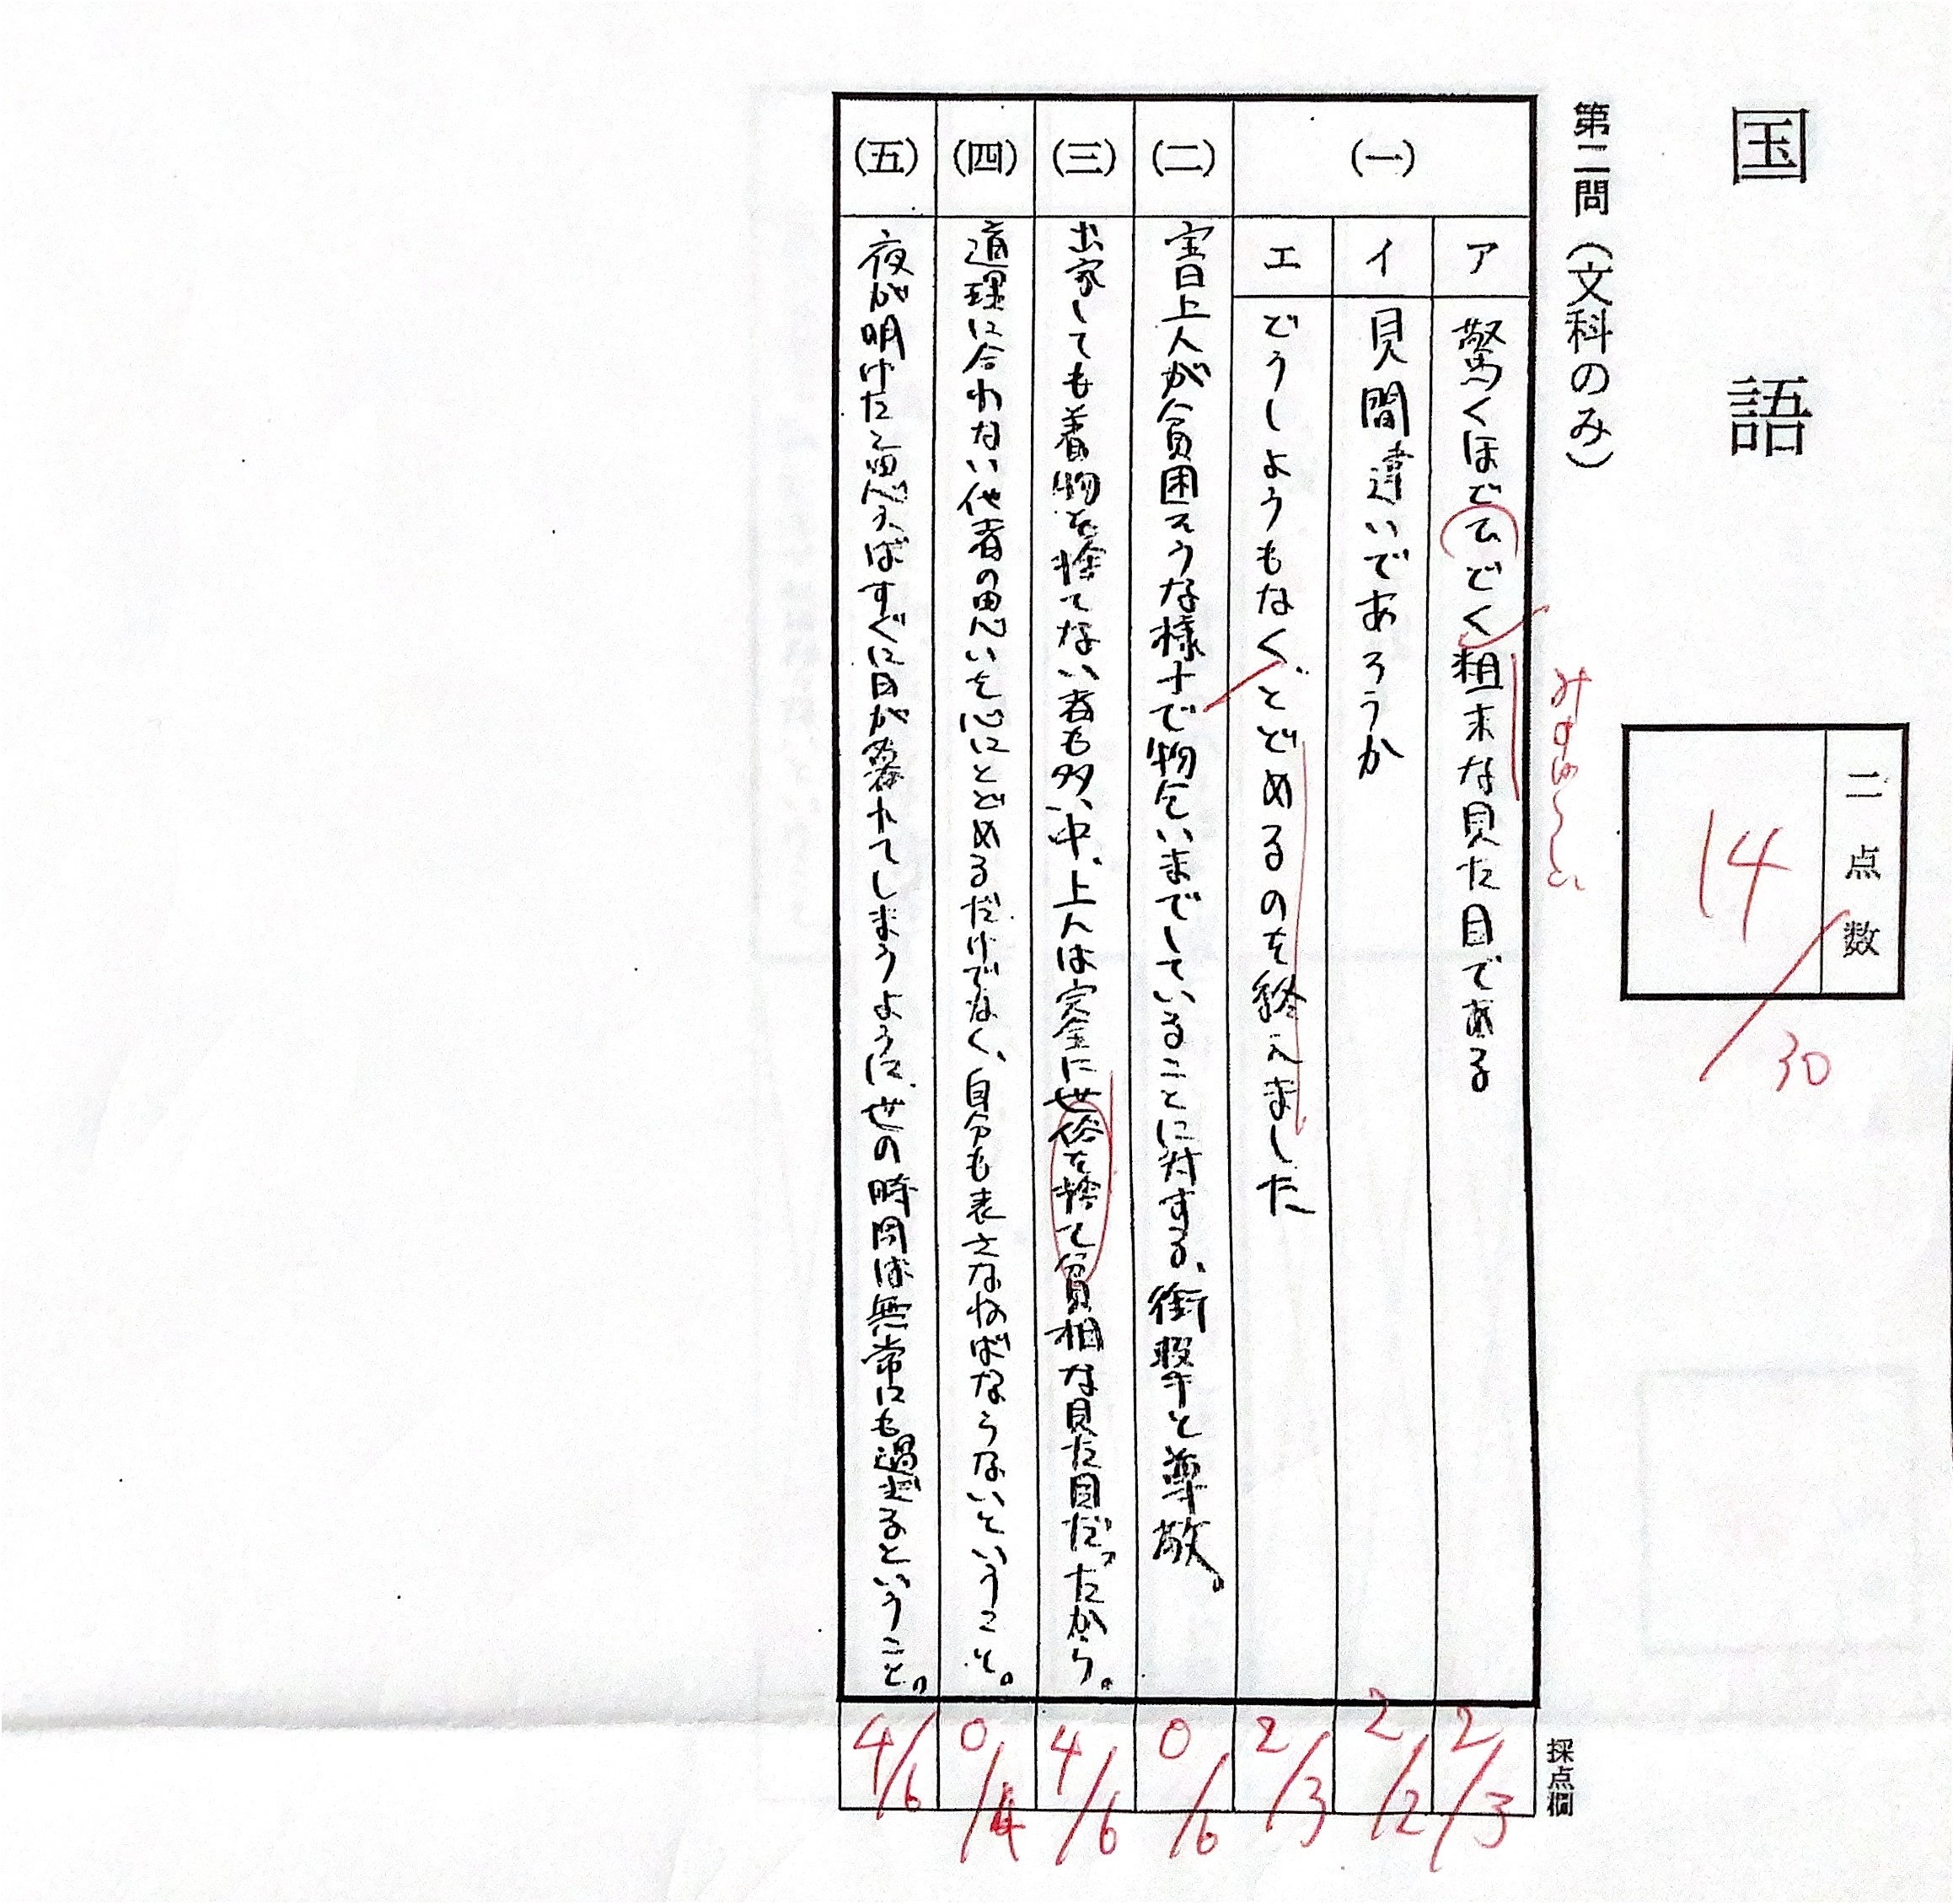 国語
第二問(文科のみ)
二点数
14/30
(一)
ア
驚くほどひどく粗末な見た目である
みすぼらしい
イ
見間違いであろうか
エ
どうしようもなく、とどめるのを終えました
(二)
宝日上人が貧困そうな様子で物乞いまでしていることに対する、衝撃と尊敬。
(三)
出家しても着物を捨てない者も多い中、上人は完全に世俗を捨て貧相な見た目だったから。
(四)
道理に合わない他者の思いを心にとどめるだけでなく、自分も表さなねばならないということ。
(五)
夜が明けたと思えばすぐに日が暮れてしまうように、世の時間は無常にも過ぎるということ。
採点欄
2/3
2/2
2/3
0/6
4/6
0/4
4/6